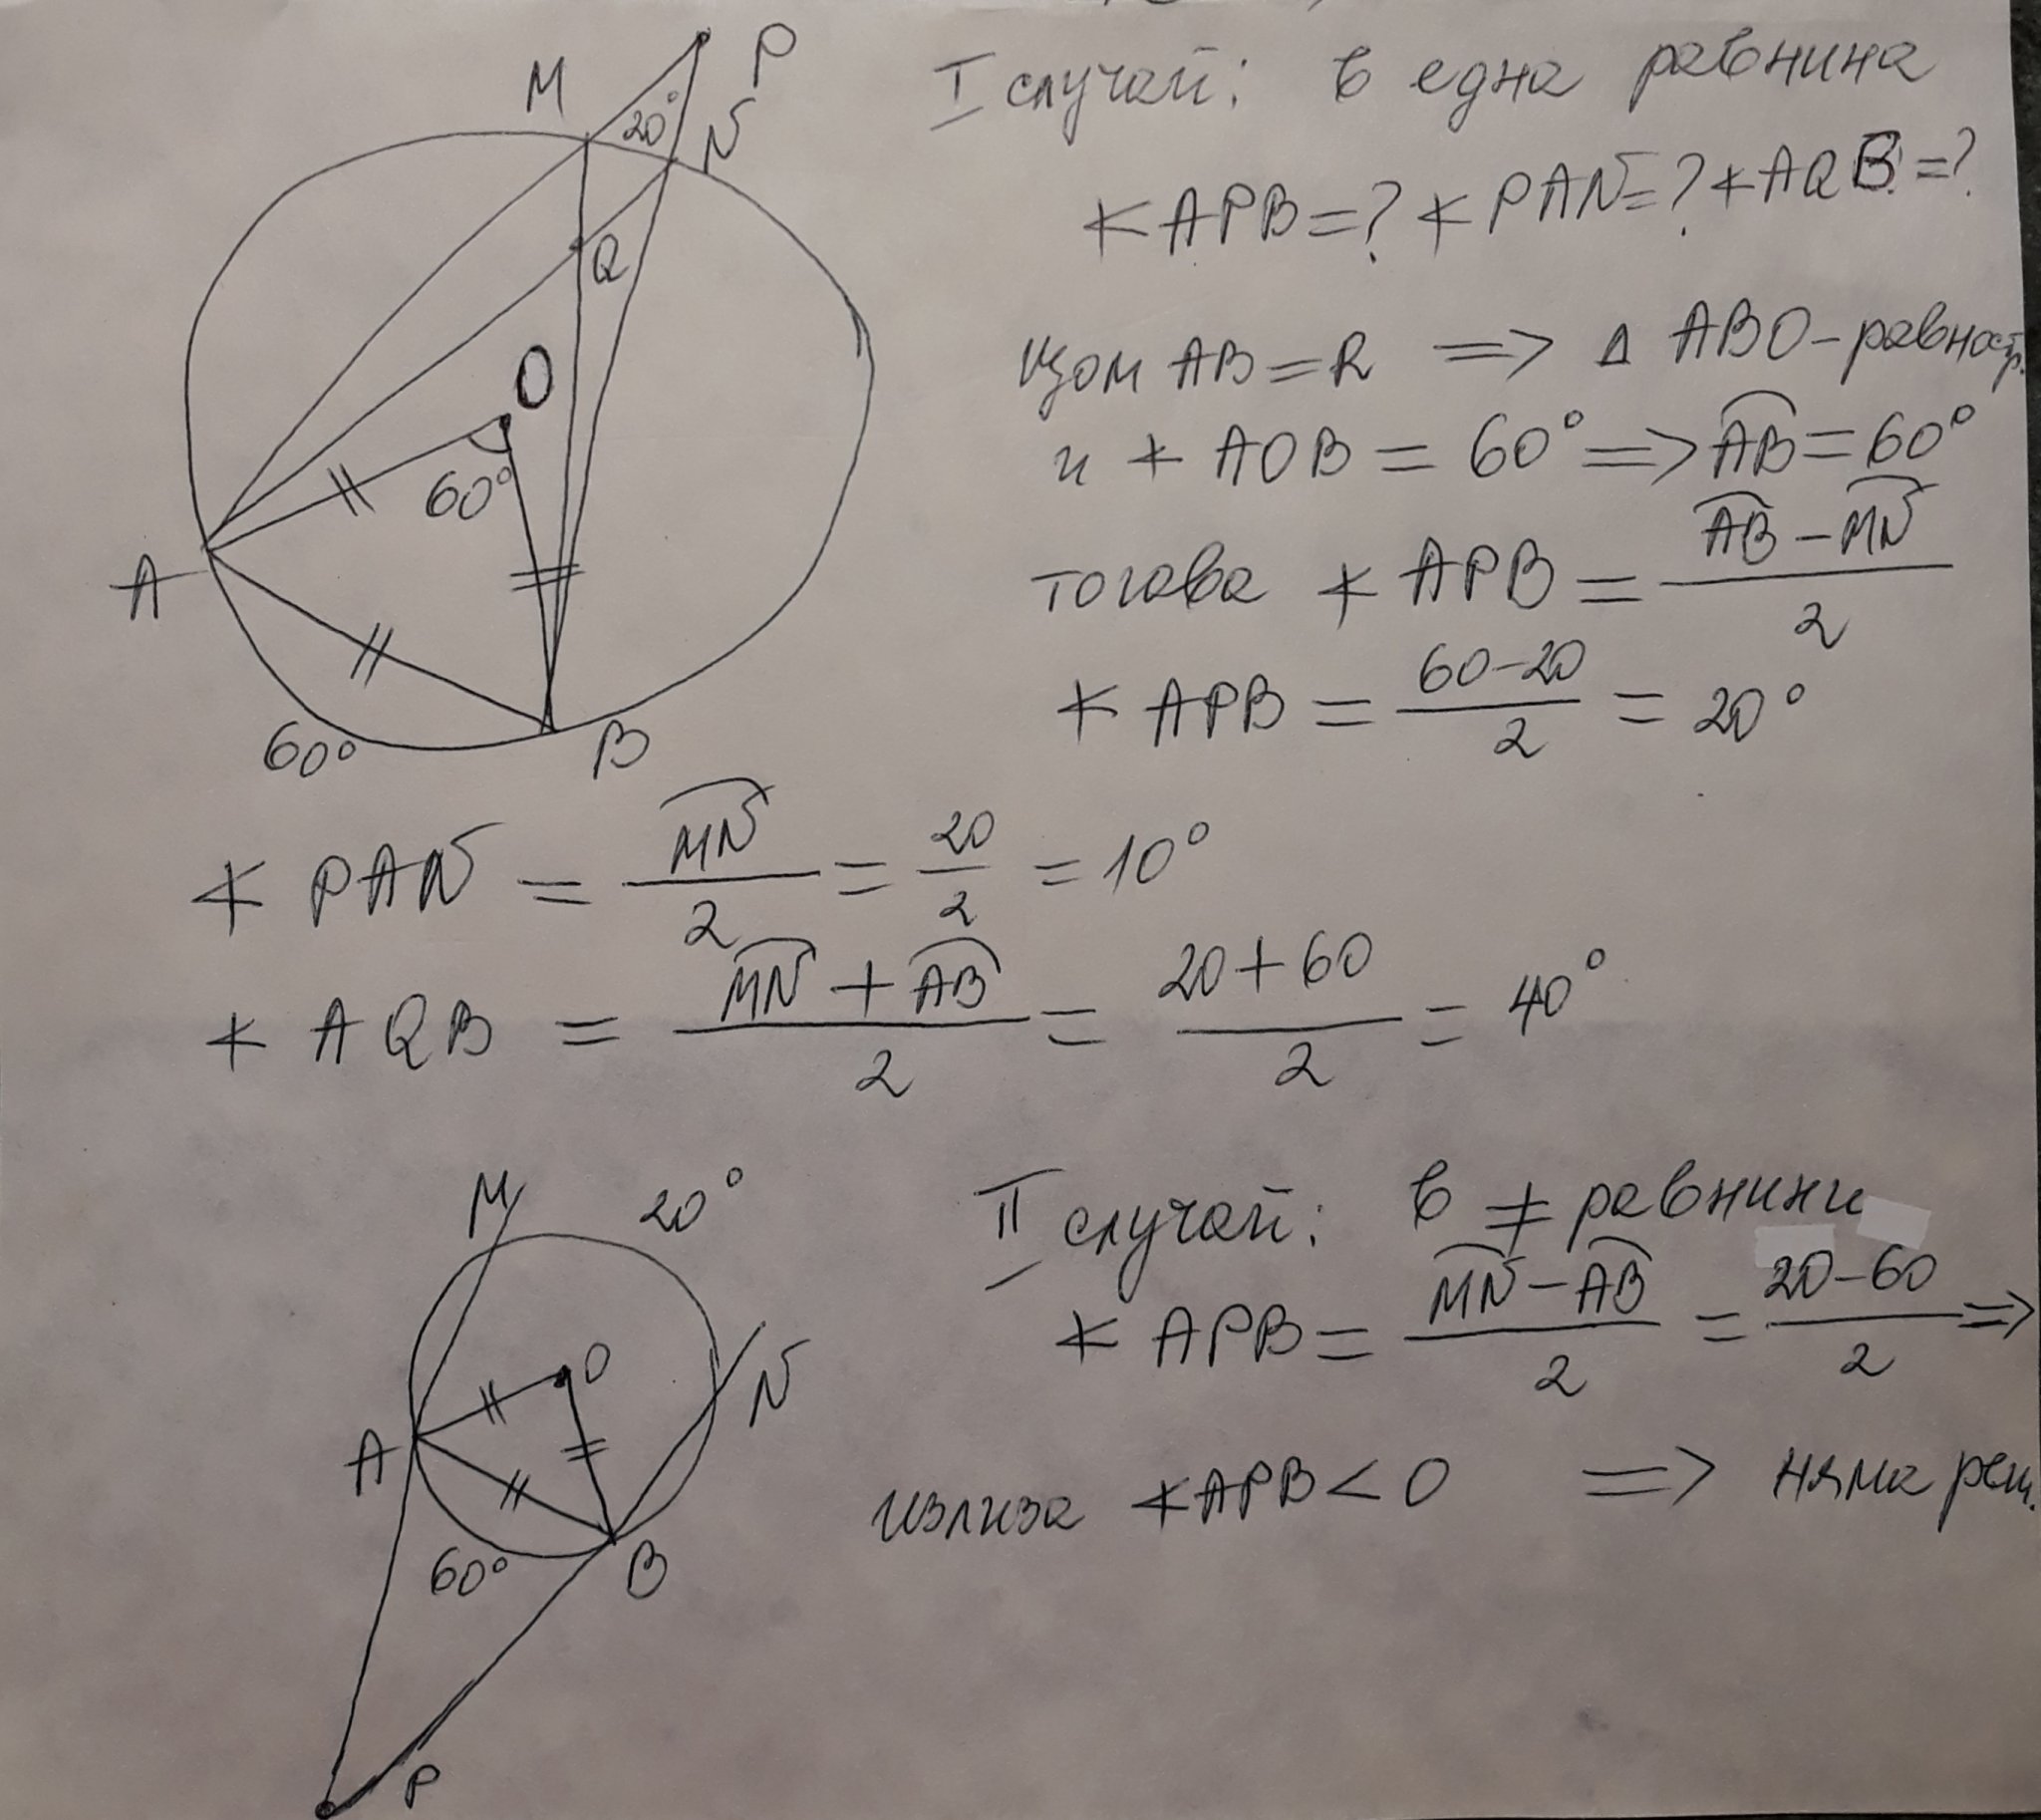 M
P
20°
N
I случай: в една равнина
∢ APB=? ∢ PAN=? ∢ AQB=?
Q
щом AB=R => △ ABO-равностр.
O
и ∢ AOB = 60° => AB = 60°
60°
тогава ∢ APB = (AB - MN)/2
A
∢ APB = (60-20)/2 = 20°
60°
B
∢ PAN = MN/2 = 20/2 = 10°
∢ AQB = (MN + AB)/2 = (20+60)/2 = 40°
M
20°
II случай: в ≠ равнини
∢ APB = (MN - AB)/2 = (20-60)/2 =>
O
N
A
излиза ∢APB < 0 => няма реш.
60°
B
P